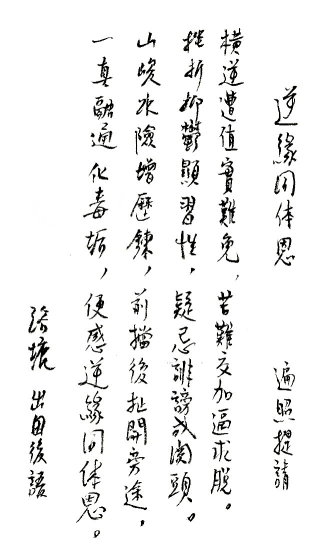 逆緣同体恩 遍照提請
橫逆遭值實難免，苦難交加逼求脫。
挫折抑鬱顯習性，疑忌誹謗成関頭。
山峻水險增歷鍊，前擋後扯開旁途，
一真融通化毒垢，便感逆緣同体恩。
出自後語